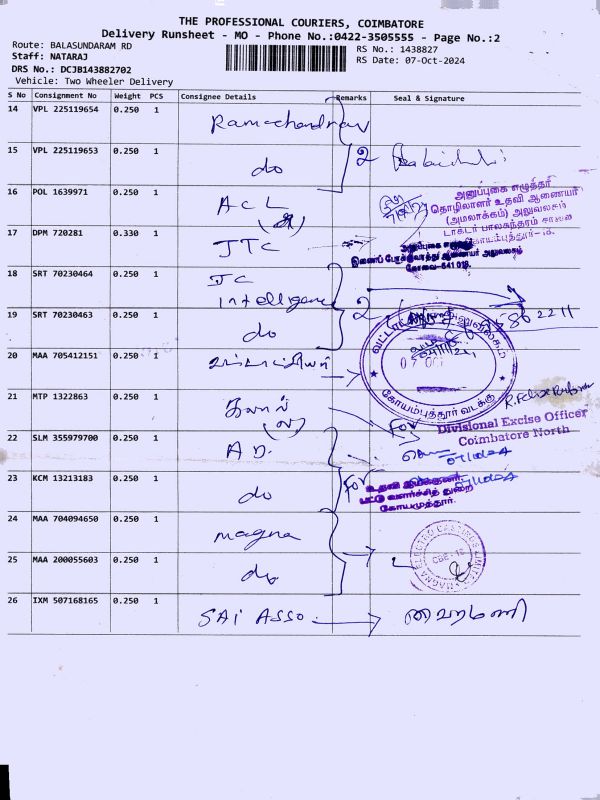 THE PROFESSIONAL COURIERS, COIMBATORE
Delivery Runsheet - MO - Phone No.:0422-3505555 - Page No.:2
Route: BALASUNDARAM RD
Staff: NATARAJ
DRS No.: DCJB143882702
Vehicle: Two Wheeler Delivery
RS No.: 1438827
RS Date: 07-Oct-2024
S No Consignment No Weight PCS Consignee Details Remarks Seal & Signature
14 VPL 225119654 0.250 1 Ramachandran
15 VPL 225119653 0.250 1 do 2
16 POL 1639971 0.250 1 ACL
அனுப்புகை எழுத்தர்
தொழிலாளர் உதவி ஆணையர்
(அமலாக்கம்) அலுவலகம்
டாக்டர் பாலசுந்தரம் சாலை
கோயம்புத்தூர்-18.
17 DPM 720281 0.330 1 JTC
இணைப் போக்குவரத்து ஆணையர் அலுவலகம்
கோவை-641 018.
18 SRT 70230464 0.250 1 JC
Intelligence 2
19 SRT 70230463 0.250 1 do
20 MAA 705412151 0.250 1
07 OCT
கோயம்புத்தூர் வடக்கு
21 MTP 1322863 0.250 1
for
Divisional Excise Officer
Coimbatore North
22 SLM 355979700 0.250 1 A.D.
23 KCM 13213183 0.250 1 do for
உதவி இயக்குனர்
பட்டு வளர்ச்சித் துறை
கோயமுத்தூர்.
24 MAA 704094650 0.250 1 magna
MAGNA ELECTRO CASTINGS LIMITED
CBE-18
25 MAA 200055603 0.250 1 do
26 IXM 507168165 0.250 1 SAI ASSO. வைரமணி